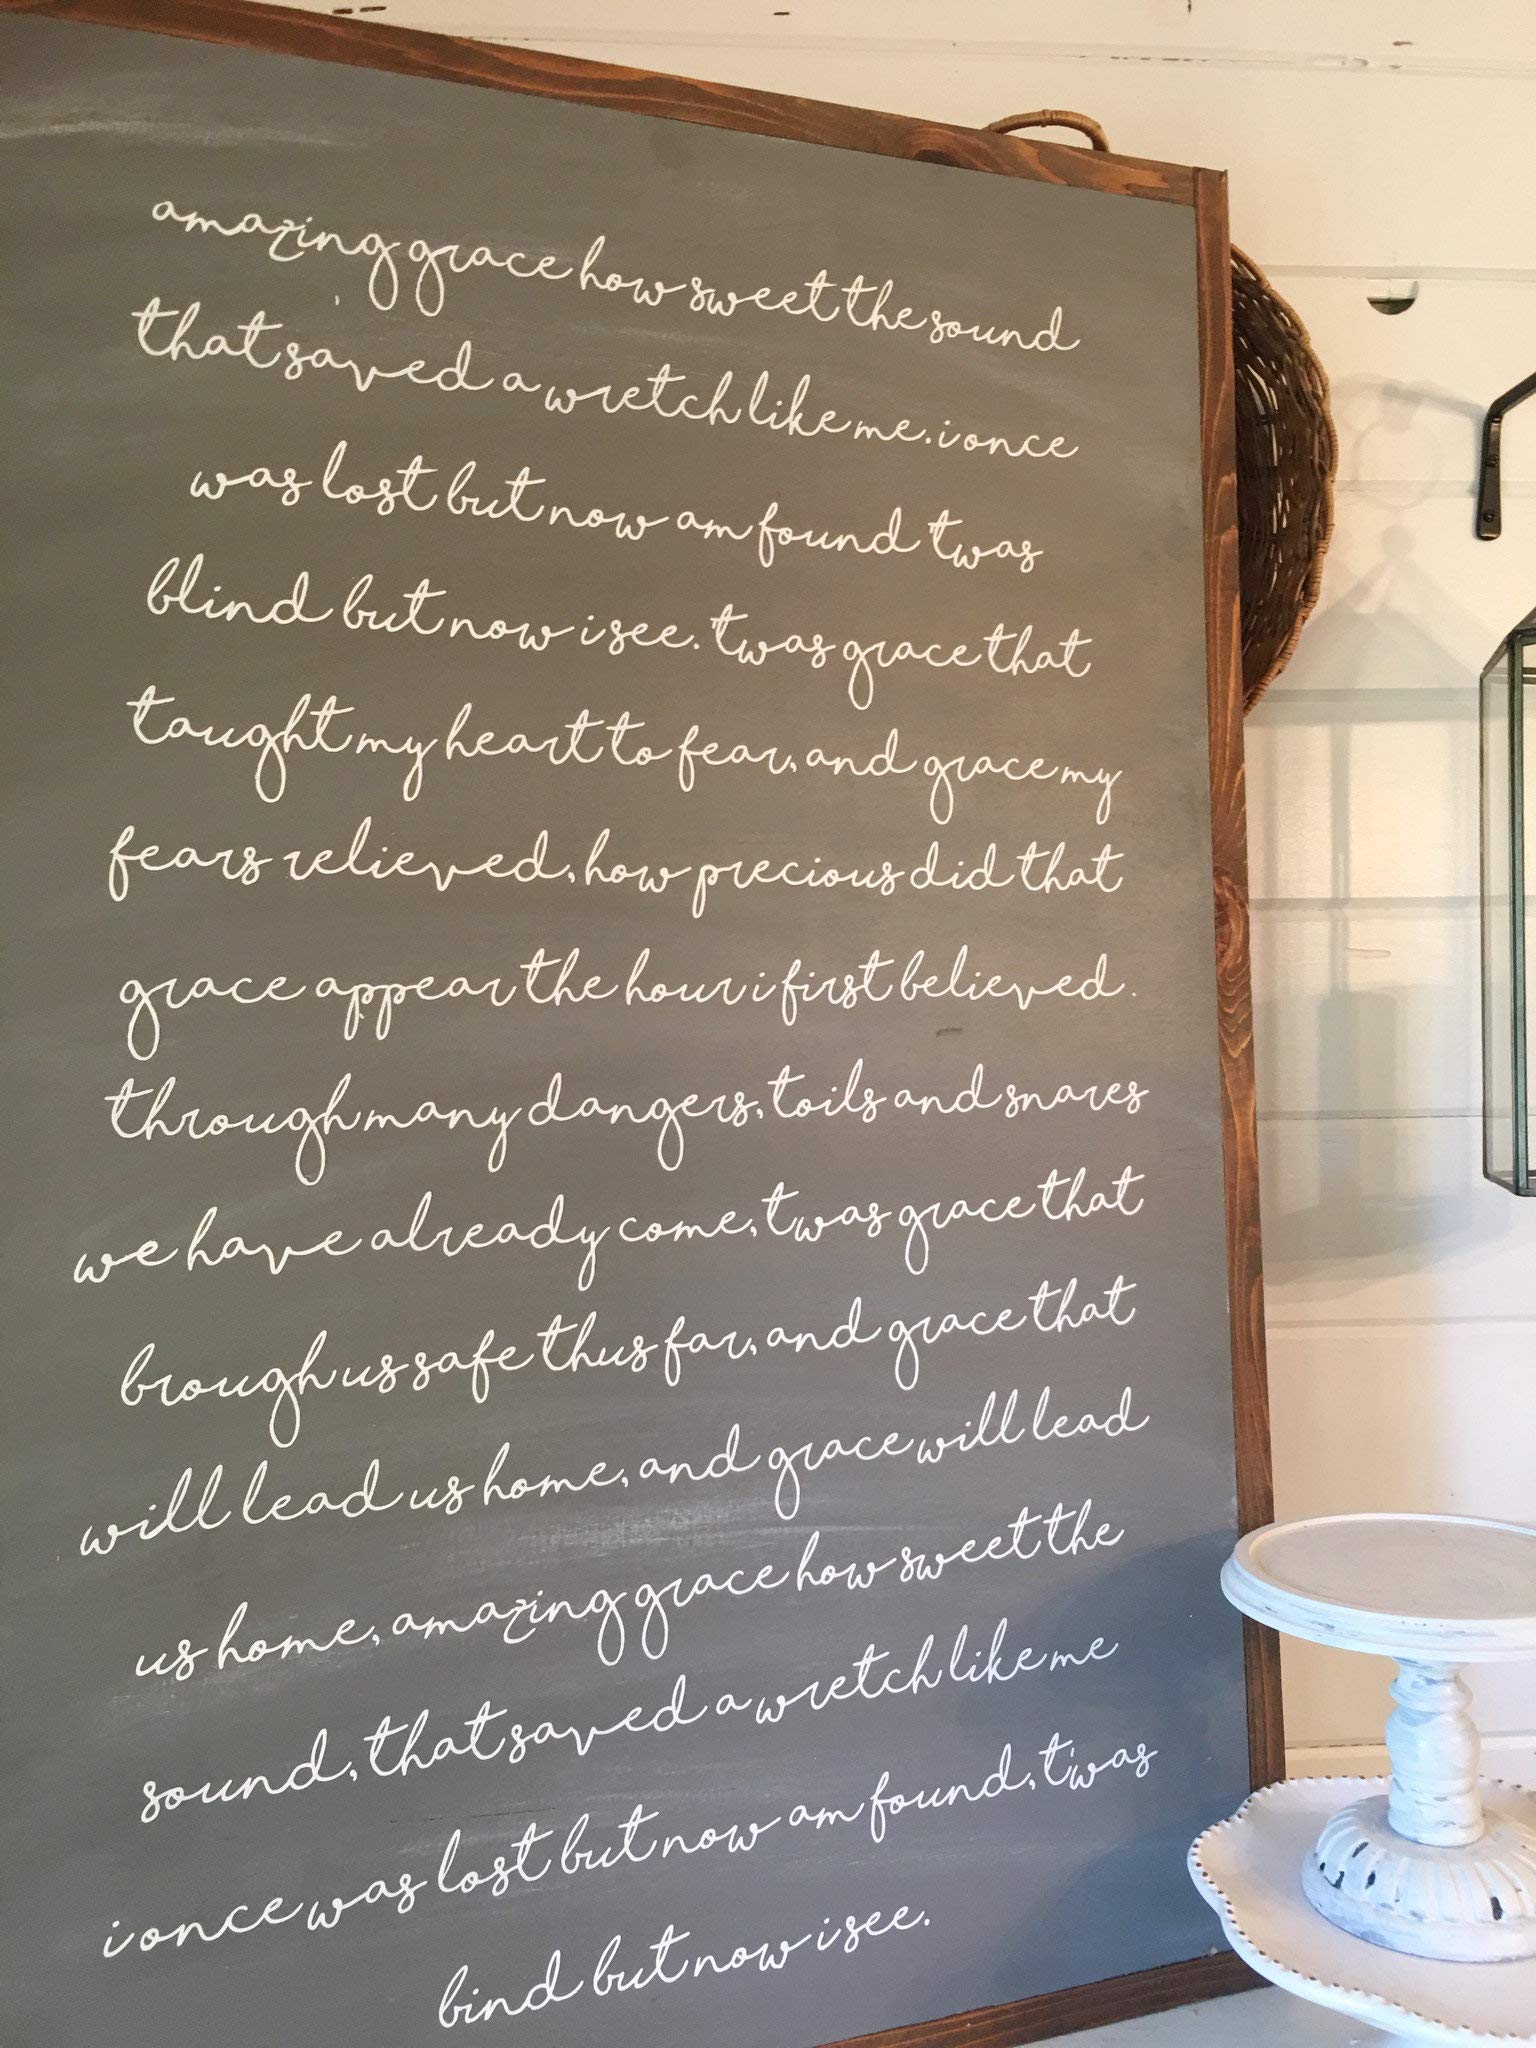 amazing grace how sweet the sound
that saved a wretch like me. i once
was lost but now am found 'twas
blind but now i see. 'twas grace that
taught my heart to fear, and grace my
fears relieved, how precious did that
grace appear the hour i first believed.
through many dangers, toils and snares
we have already come, twas grace that
brough us safe thus far, and grace that
will lead us home, and grace will lead
us home, amazing grace how sweet the
sound, that saved a wretch like me
i once was lost but now am found, t'was
bind but now i see.